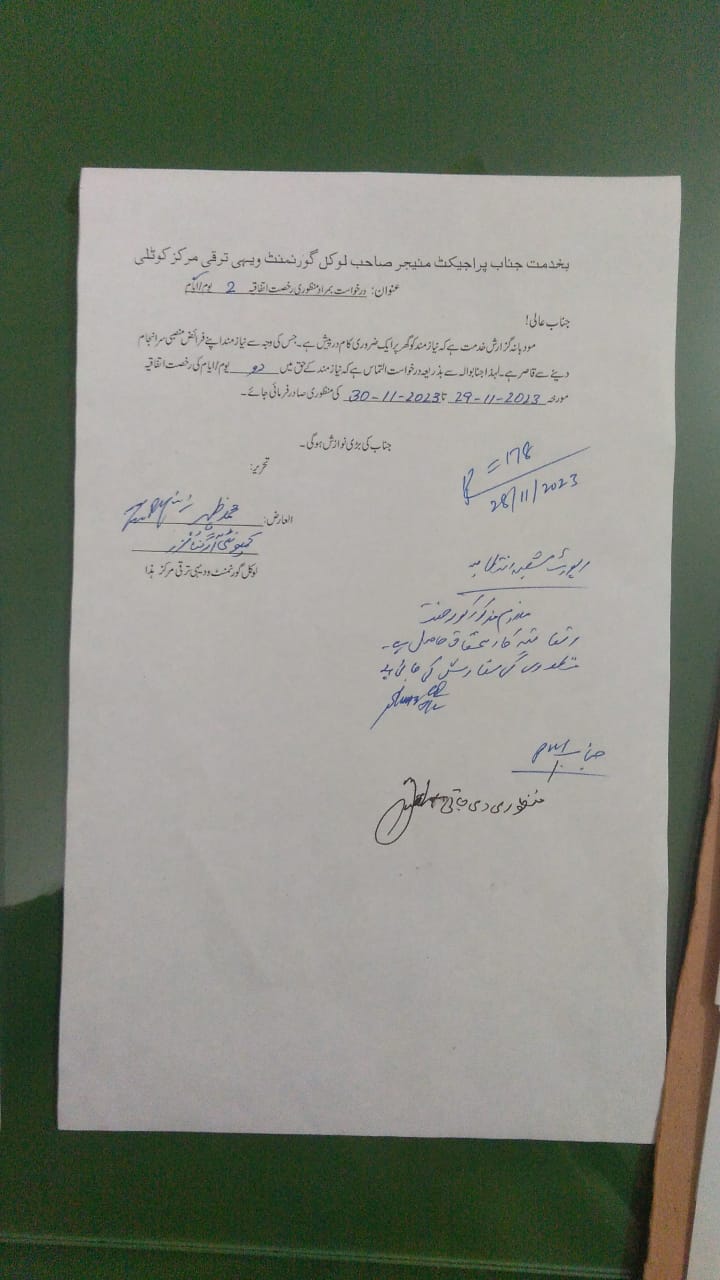 بخدمت جناب پراجیکٹ منیجر صاحب لوکل گورنمنٹ ویہی ترقی مرکز کوٹلی
عنوان: درخواست بمراد منظوری رخصت اتفاقیہ 2 یوم/ایام
جناب عالی!
مودبانہ گزارش خدمت ہے کہ نیاز مند کو گھر پر ایک ضروری کام درپیش ہے۔ جس کی وجہ سے نیاز مند اپنے فرائض منصبی سرانجام
دینے سے قاصر ہے۔ لہذا جنابوالہ سے بذریعہ درخواست التماس ہے کہ نیاز مند کے حق میں دو یوم/ایام کی رخصت اتفاقیہ
مورخہ 29-11-2023 تا 30-11-2023 کی منظوری صادر فرمائی جائے۔
جناب کی بڑی نوازش ہوگی۔
تحریر:
=178
28/11/2023
العارض: محمد ظہیر
کمیونٹی آرگنائزر
لوکل گورنمنٹ و دیہی ترقی مرکز ہذا
رپورٹ شعبہ انتظامیہ
ملازم مذکور کو رخصت
اتفاقیہ کا استحقاق حاصل ہے۔
منظوری کی سفارش کی جاتی ہے
جناب PM
منظوری دی جاتی ہے